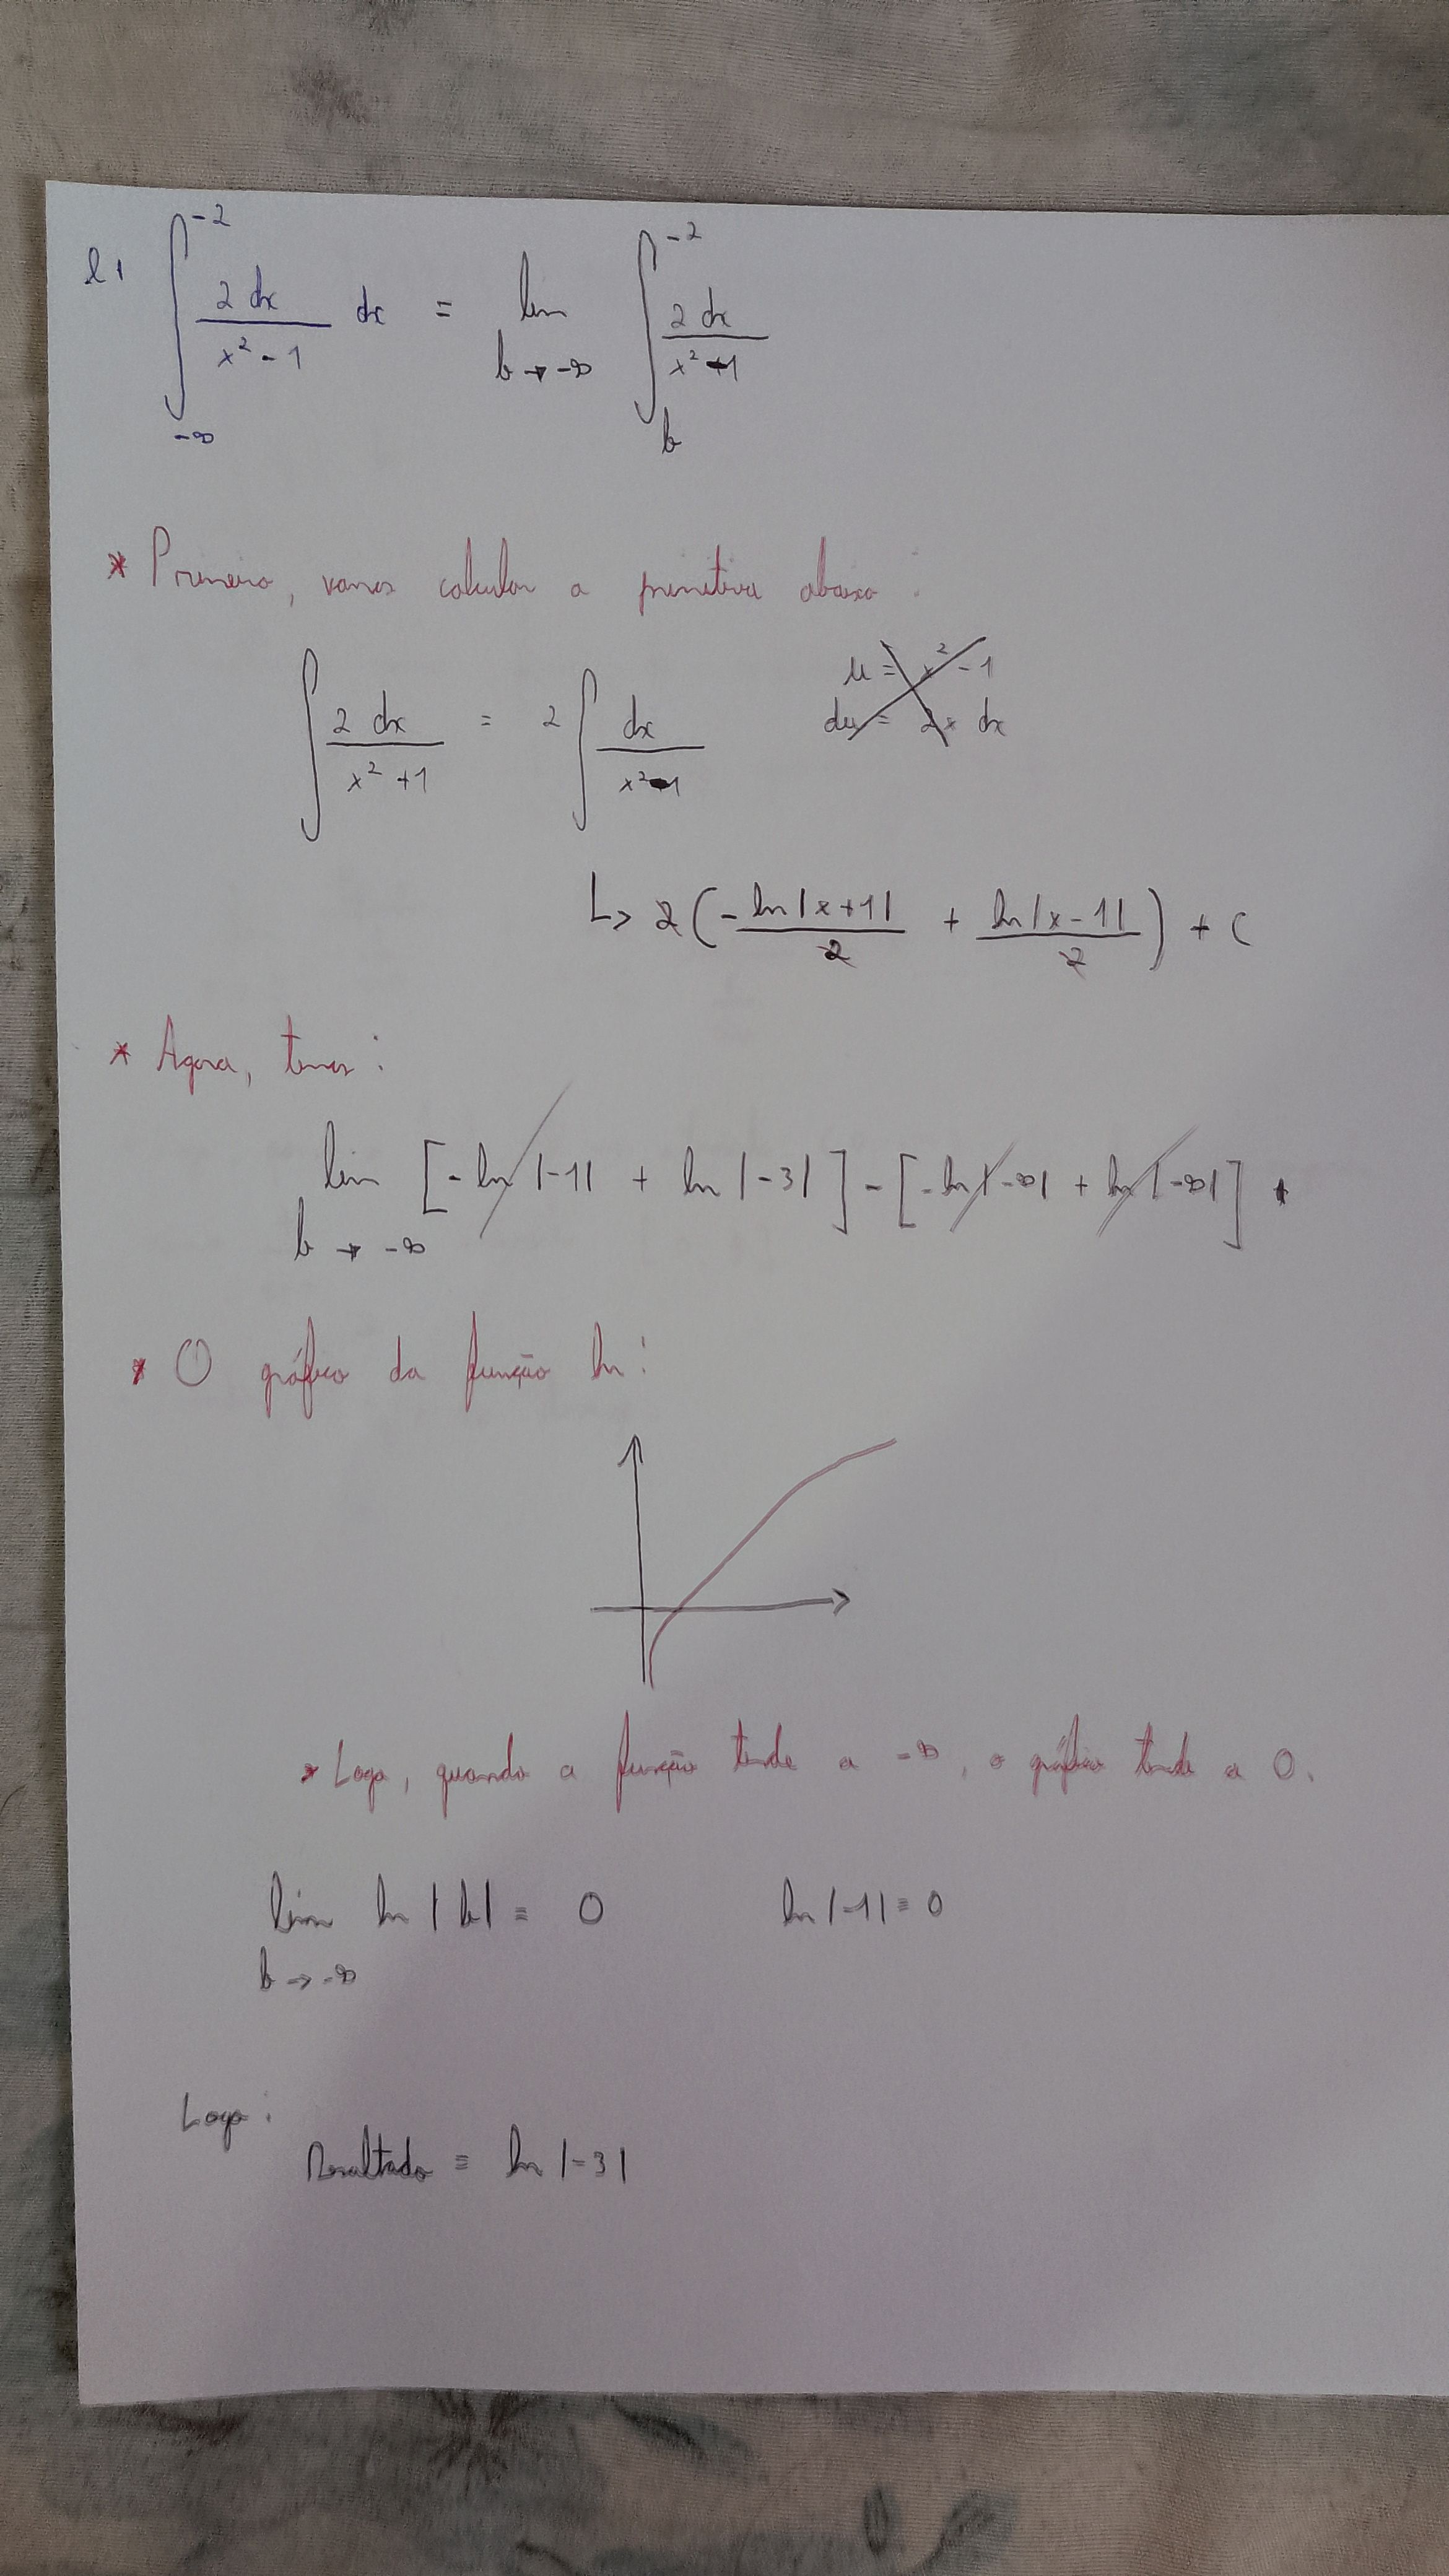 l) ∫_{-∞}^{-2} 2 dx / (x² - 1) dx = lim_{b → -∞} ∫_{b}^{-2} 2 dx / (x² - 1)
* Primeiro, vamos calcular a primitiva abaixo:
∫ 2 dx / (x² + 1) = 2 ∫ dx / (x² - 1)
u = x² - 1
du = 2x dx
↳ 2 ( - ln|x+1| / 2 + ln|x-1| / 2 ) + C
* Agora, temos:
lim_{b → -∞} [ - ln |-1| + ln |-3| ] - [ - ln |-∞| + ln |-∞| ]
* O gráfico da função ln:
* Logo, quando a função tende a -∞, o gráfico tende a 0.
lim_{b → -∞} ln |b| = 0 ln |-1| = 0
Logo:
Resultado = ln |-3|